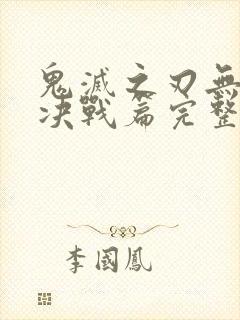 鬼滅之刃無
決戰篇完整
李國鳳